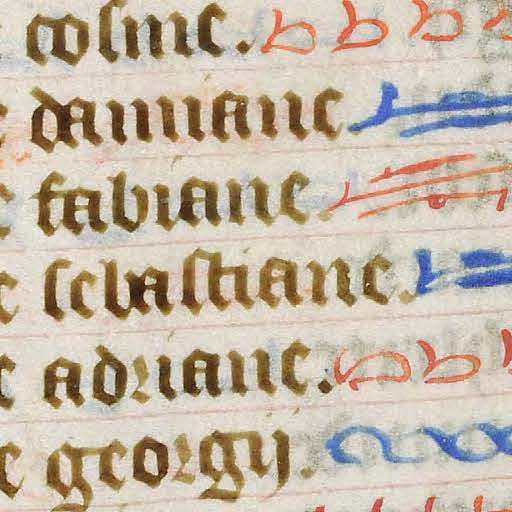 e cosme.
e damiane
e fabiane.
e sebastiane.
e adriane.
e georgij.